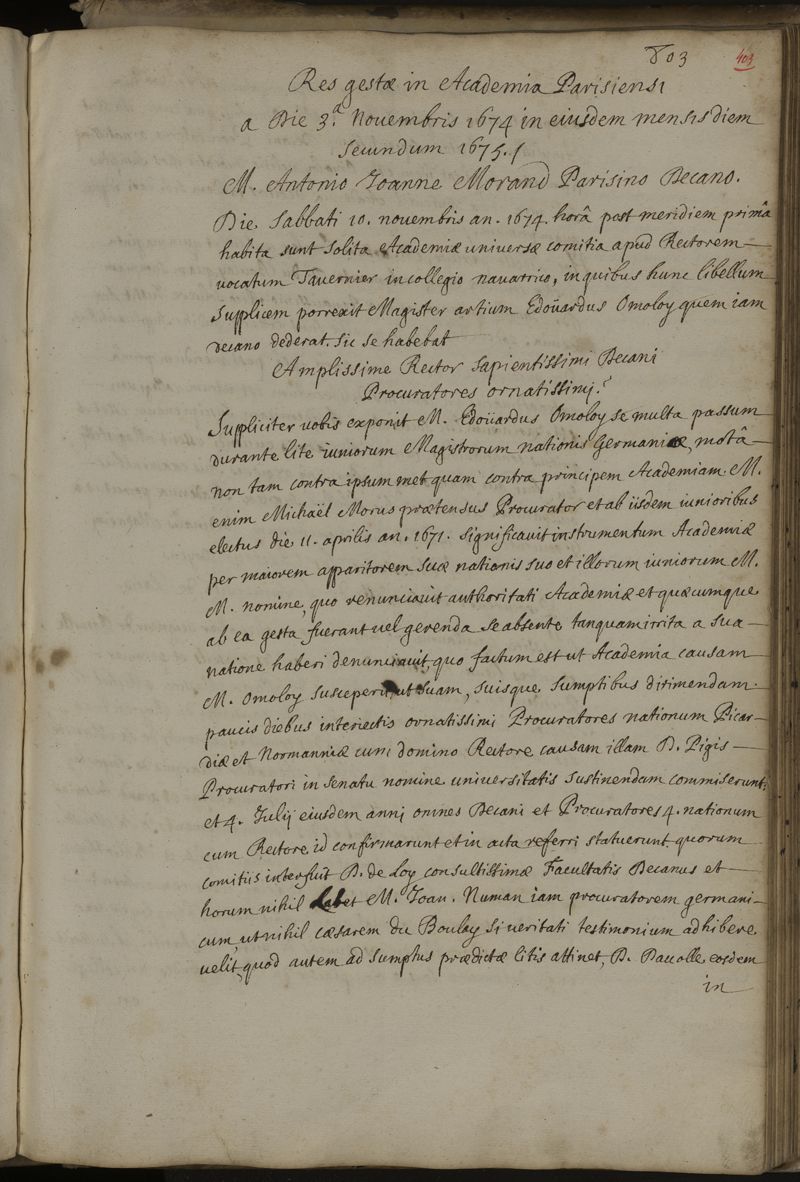 803 403
Res gestæ in Academia Parisiensi
a Die 3.ª Nouembris 1674 in eiusdem mensis diem
secundum 1675.
M. Antonio Joanne Morand Parisino Decano.
Die Sabbati 10. nouembris an. 1674. horâ post meridiem primâ
habita sunt solita Academiæ uniuersæ comitia apud Rectorem
uocatum Tauernier in collegio nauarrico, in quibus hunc libellum
supplicem porrexit Magister artium Edoüardus Omoloy quem iam
decano dederat. sic se habebat
Amplissime Rector sapientissimi Decani
Procuratores ornatissimj.
Suppliciter uobis exponit M. Edoüardus Omoloy se multa passum
durante lite iuniorum Magistrorum nationis Germaniæ, motâ
non tam contra ipsummet quam contra principem Academiam. M.
enim Michaël Morus prætensus Procurator et ab iisdem iunioribus
electus die 11. aprilis an. 1671. significauit instrumentum Academiæ
per maiorem apparitorem suæ nationis suo et illorum iuniorum M.
M. nomine, quo renunciauit authoritati Academiæ et quæcumque
ab ea gesta fuerant uel gerenda se absente tanquam irrita a sua
natione haberi denunciauit, quo factum est ut Academia causam
M. Omoloy susceperit, ut suam, suisque sumptibus dirimendam.
paucis diebus interiectis ornatissimi Procuratores nationum Picar-
diæ et Normanniæ cum domino Rectore causam illam D. Pigis
Procuratori in senatu nomine uniuersitatis sustinendam commiserunt;
et 4. Julij eiusdem annj omnes Decani et Procuratores 4. nationum
cum Rectore id confirmarunt et in acta referri statuerunt, quorum
comitiis interfuit D. de Loy consultissimæ Facultatis Decanus et
horum nihil Latet M. Joan. Numan iam procuratorem germani-
cum, ut nihil cæsarem du Boulay si ueritati testimonium adhibere
uelit, quod autem ad sumptus prædictæ litis attinet, D. Dauolle eosdem
in